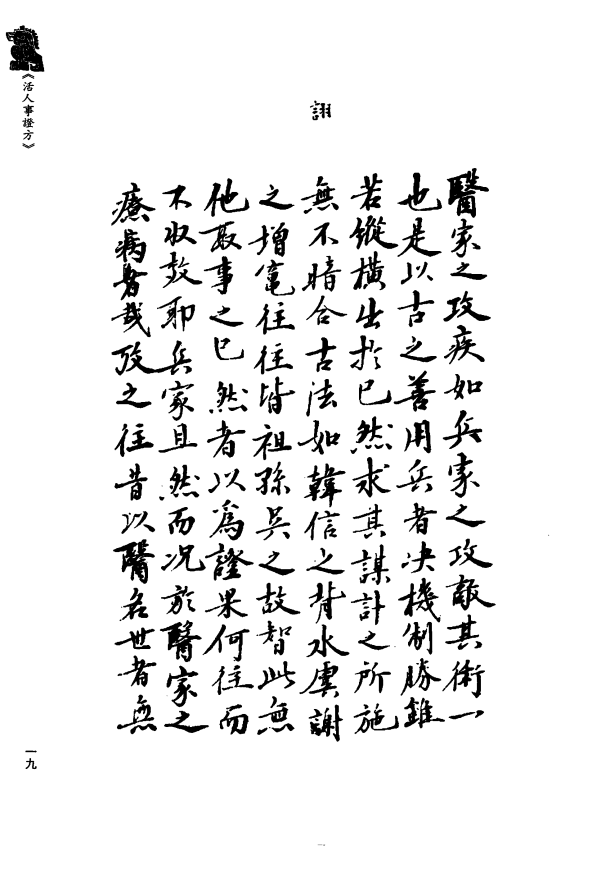 詡
醫家之攻疾如兵家之攻敵其術一
也是以古之善用兵者决機制勝雖
若縱橫出於已然求其謀計之所施
無不暗合古法如韓信之背水虞謝
之增竈往往皆祖孫吳之故智此無
他取事之已然者以爲證果何往而
不收效耶兵家且然而况於醫家之
療病者哉攷之往昔以醫名世者無
《活人事證方》
一九